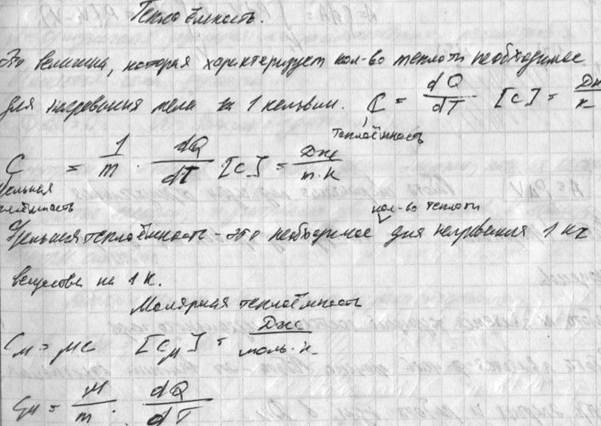 Теплоёмкость.
Это величина, которая характеризует кол-во теплоты необходимое
для нагревания тела на 1 кельвин. C = dQ/dT [C] = Дж/К
теплоёмкость
C = 1/m · dQ/dT [C] = Дж/m·К
удельная
теплоёмкость
кол-во теплоты
Удельная теплоёмкость - это необходимое для нагревания 1 кг
вещества на 1 К.
Молярная теплоёмкость
Cм = μc [Cμ] = Дж/моль·К
Cμ = μ/m · dQ/dT